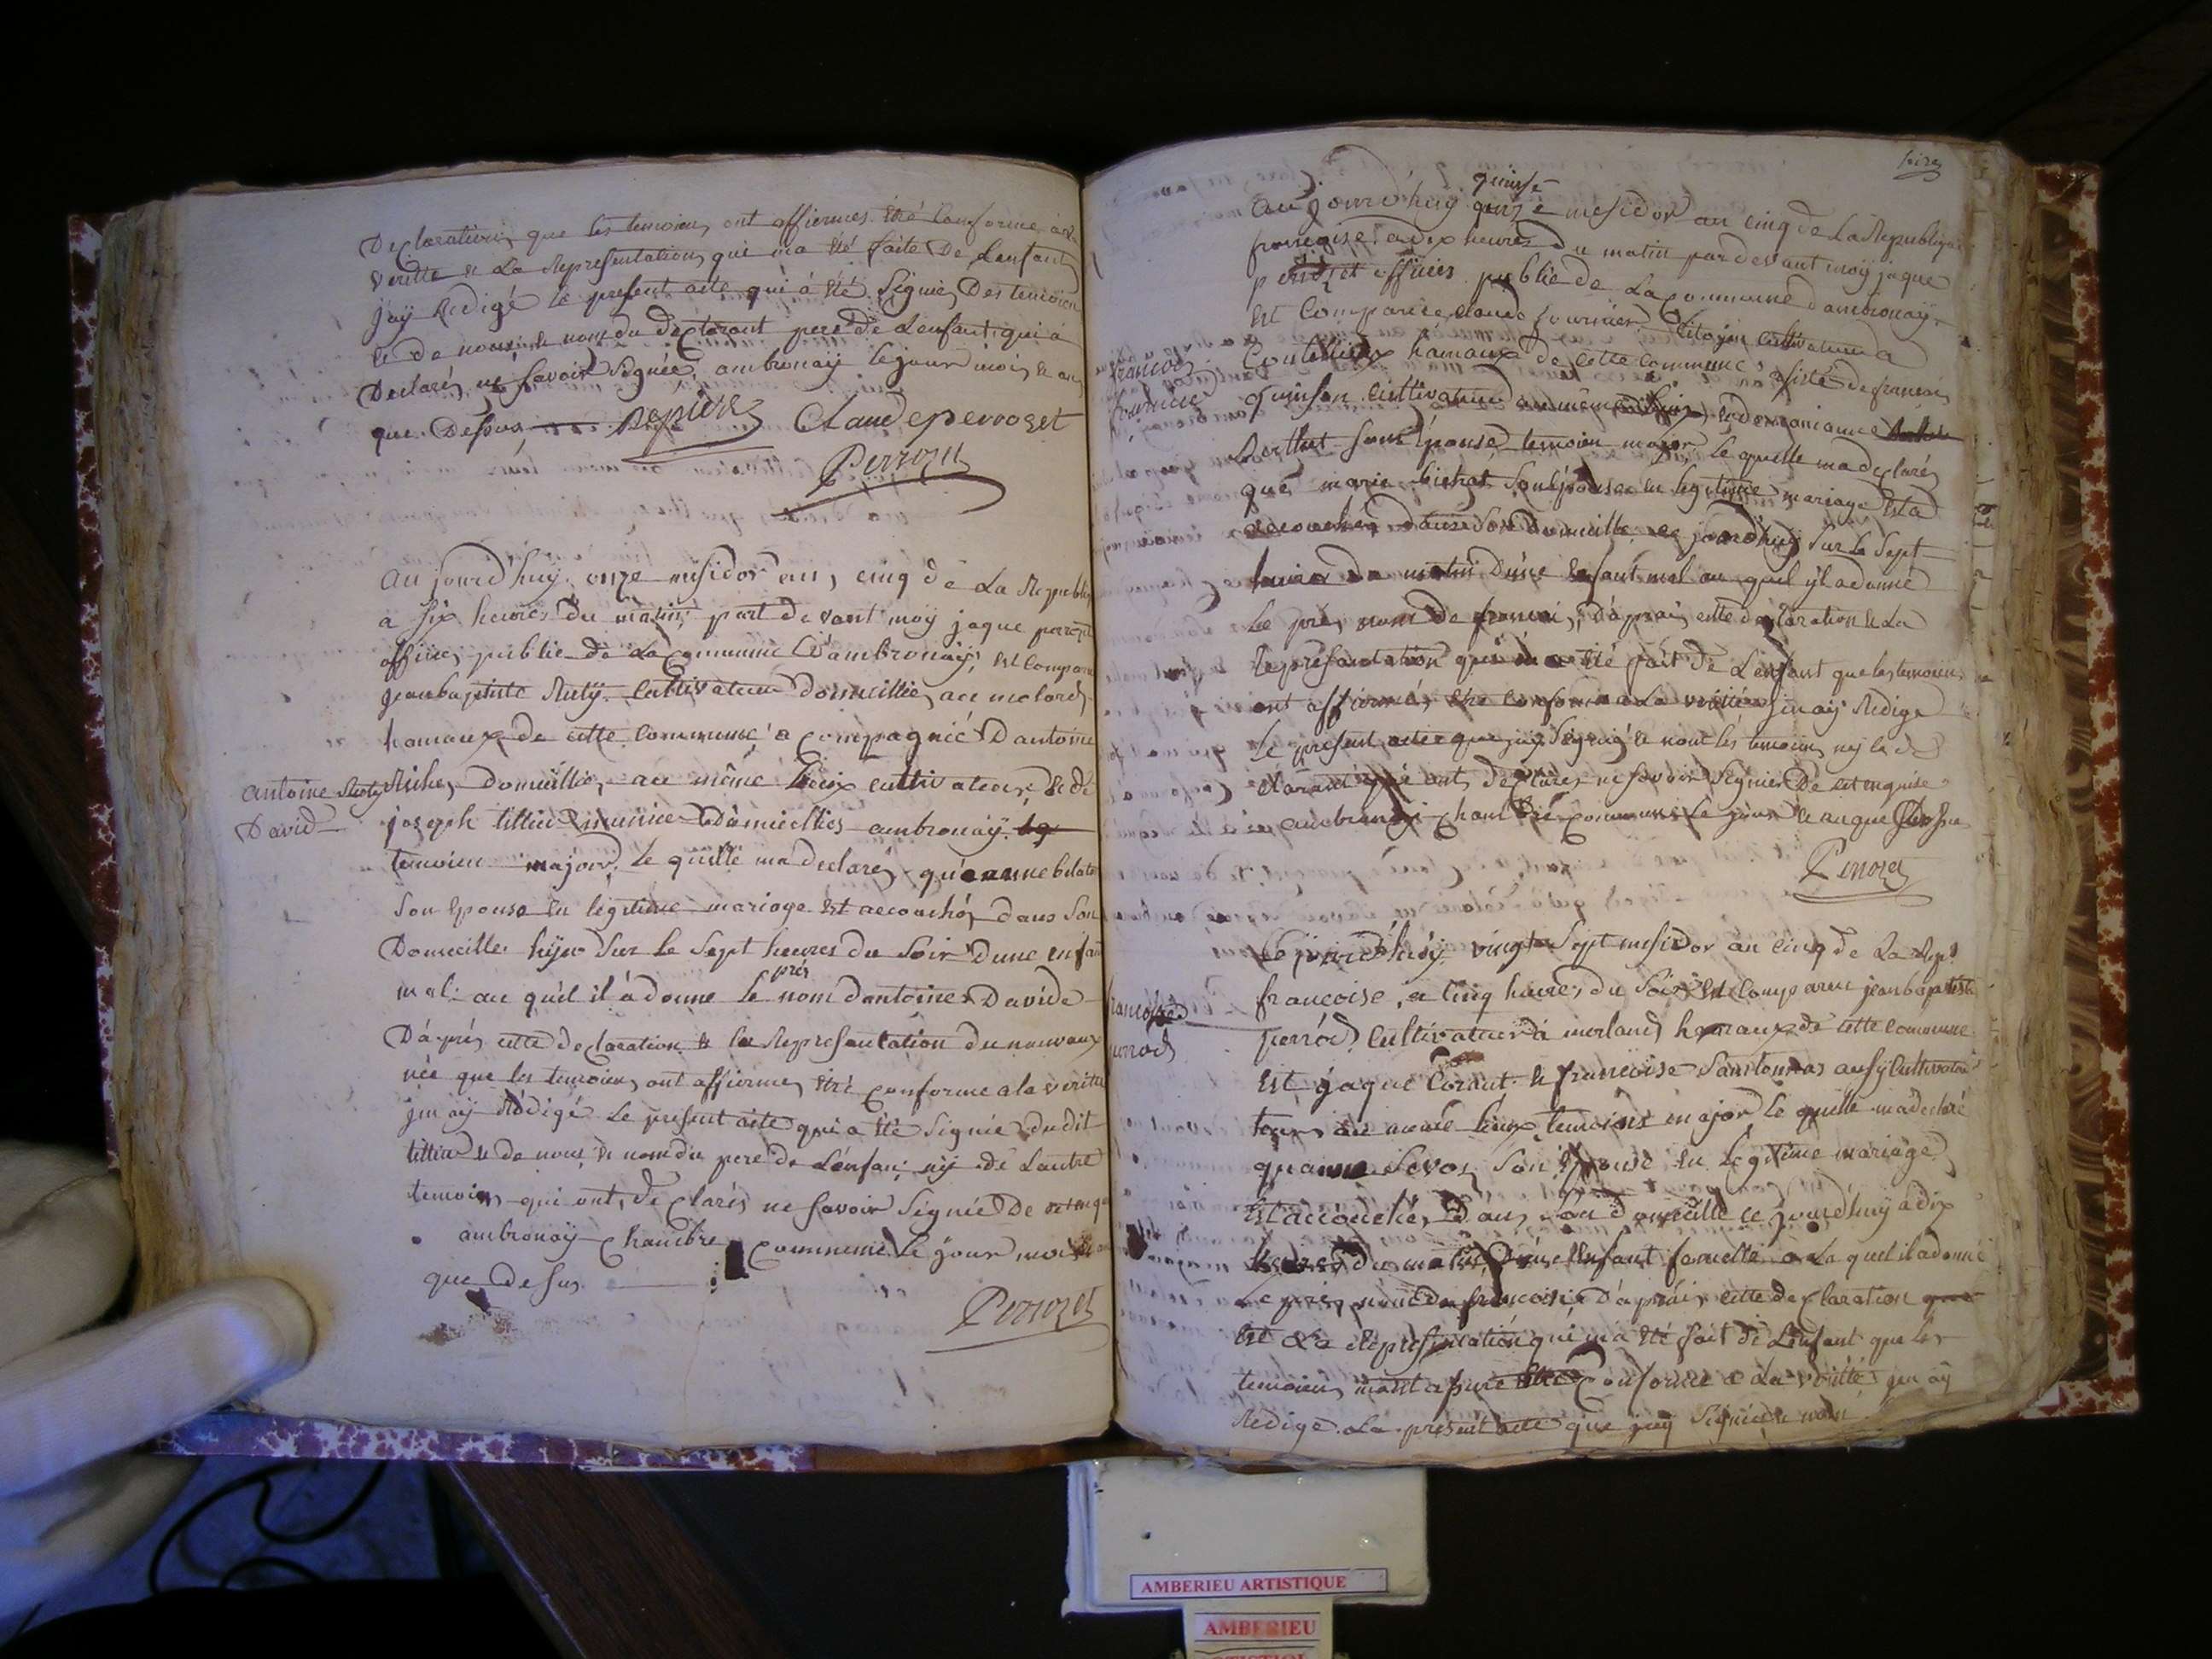 Declaration que les temoins ont affiermes Etré Conforme à la
veritte & La Representation qui ma été faite De Lenfant
jay Redigé le present acte qui à été Signié Des temoien
et de nous, & non du declarant pere de Lenfant qui à
Declarés ne Savoir Signée, ambronaÿ le jour mois & an
que Desus
Claude perrozet
Perrozet
au jourd'huÿ onze mesidor an, cinq de La Republi
a Six heures du matin, part devant moÿ jaque perrozet
officier publie de La Commune D'ambronaÿ, est Compare
jeanbaptiste Rutÿ Cultivateur Domicillié au molard
hamaux de cette Commune a Compagnié D'antoine
antoine Ruty
David
Domicillié au même Lieux cultivateur & de
joseph tillier Damicillies ambronaÿ
temoien major, Le quelle ma declarés qu'anne
Son Epouse en légitime mariage Est accouchés dans Son
Domicille hÿer Sur le Sept heures du Soir Dune enfan
mal au quel il à donne le prés nom dantoine David
D'aprés cette declaration & la Representation du nouvaux
née que les temoiens ont affiermes Etré conforme a la veritte
jen aÿ Rédigé Le present acte qui a été Signié dudit
tillier & de nous & non du pere de Lénfan, nÿ de Lautre
temoien qui ont declarés ne Savoir Signié De
ambronaÿ Chambre Commune Le jour mois
que desus
Perrozet
quinse
au jourd'huÿ quinze mesidor an cinq de La Republique
francaise, a dix heures du matin pardevant moÿ jaque
perrozet officier publie de La Commune d'ambronaÿ
Est Comparue claude fournier Citoÿen Cultivateur a
hamaux de cette Commune asisté de francois
francois
fournier
quinson Cultivateur au meme
Berthet Sont Epouse, temoien major, Le quelle ma declarés
que marie bichat Son Epouse en legitime mariage Est a
accouchés dans Son Domicille ce jourdhuÿ Sur Le Sept
heures du matin D'une Enfant mal au quel ÿl a donné
Le prés nom de francois, D'aprais cette déclaration & La
Représantation qui m a été fait de Lenfant que les temoiens
ont affiermés etre conforme a La veritté jen aÿ Redigé
Le present acte que jay Signié & nont les temoien nÿ le de
clarant qui ont declarés ne Savoir Signié De
ambronaÿ chambre commune Le jour & an que Desus
Perrozet
Ce jourd'huÿ vingt Sept mesidor an Cinq de La Rep
francoise, a Cinq heures du Soir Est Comparue jeanbaptiste
francoise
perrod
perrod Cultivateur à morland hamaux de cette Commune
Est jaque Coraut & francoise ausÿ Cultivateur
tous au meme Lieux temoins major Le quelle ma déclaré
quanne Son Epouse en Legitime mariage
Est accouchée Dans Son domicille ce jourd'huÿ à dix
heures du matin D'une Enfant femelle a La quel il a donné
Le pres nom de francoise D'aprais cette declaration
Est La Representation qui ma été fait de Lenfant que les
temoiens mont asuré Etre Conforme a La veritté jen aÿ
Redigé La present acte que jay Signié & non
AMBERIEU ARTISTIQUE
AMBERIEU